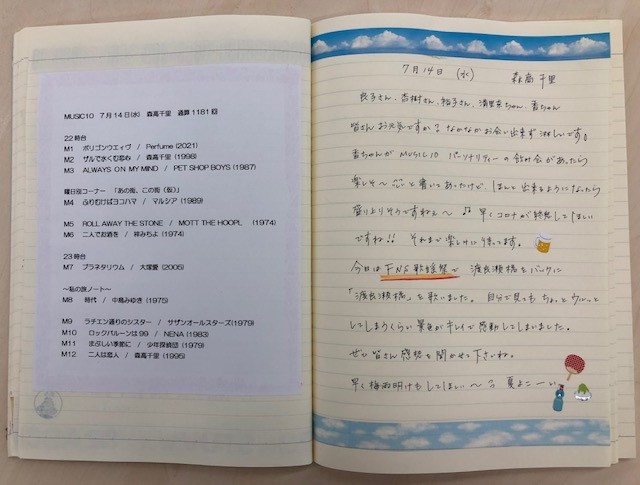 MUSIC10 7月14日(水) 森高千里 通算1181回
22時台
M1 ポリゴンウェイヴ / Perfume (2021)
M2 ザルで水くむ恋心 / 森高千里 (1996)
M3 ALWAYS ON MY MIND / PET SHOP BOYS (1987)
曜日別コーナー 「あの街、この街(仮)」
M4 ふりむけばヨコハマ / マルシア (1989)
M5 ROLL AWAY THE STONE / MOTT THE HOOPL (1974)
M6 二人でお酒を / 梓みちよ (1974)
23時台
M7 プラネタリウム / 大塚愛 (2005)
~私の旅ノート~
M8 時代 / 中島みゆき (1975)
M9 ラチエン通りのシスター / サザンオールスターズ(1979)
M10 ロックバルーンは99 / NENA (1983)
M11 まぶしい季節に / 少年探偵団 (1979)
M12 二人は恋人 / 森高千里 (1996)
7月14日 (水) 森高千里
良子さん、杏樹さん、裕子さん、清里奈ちゃん、香ちゃん
皆さんお元気ですか? なかなかお会い出来ず淋しいです。
香ちゃんが MUSIC10 パーソナリティーの飲み会があったら
楽しそ〜 と書いてあったけど、ほんと出来るようになったら
盛り上りそうですね〜 ♫ 早くコロナが終息してほしい
ですね!! それまで楽しみに待ってます。
今日は FNS歌謡祭で 渡良瀬橋をバックに
「渡良瀬橋」を歌いました。自分で見てもちょっとウルッと
してしまうくらい景色がキレイで感動してしまいました。
ぜひ皆さん感想を聞かせて下さいね。
早く梅雨明けもしてほしい〜 夏よこーい